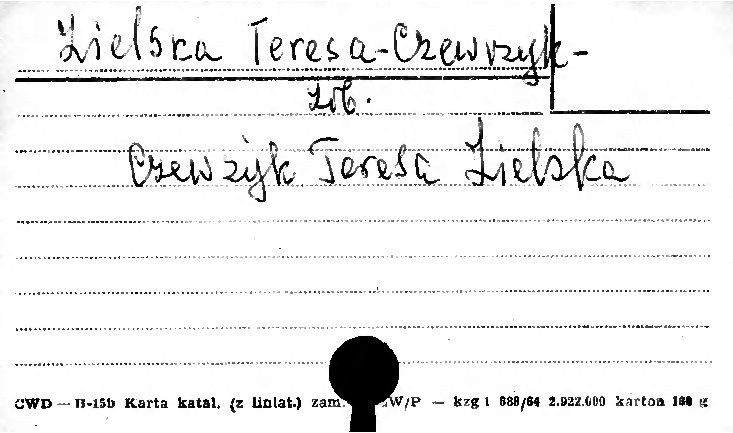 Zielska Teresa-Czewrzyk-
zob.
Czewżyk Teresa Zielska
CWD — B-15b Karta katal. (z liniat.) zam. W/P — kzg i 688/64 2.922.000 karton 160 g